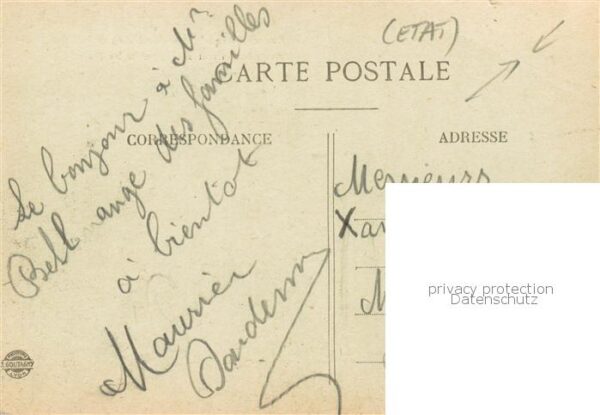 (ETAT)
CARTE POSTALE
CORRESPONDANCE
ADRESSE
Le bonjour à Mr
Bellange des familles
à bientot
Maurice
Messieurs
Xa
M
privacy protection
Datenschutz
LYON